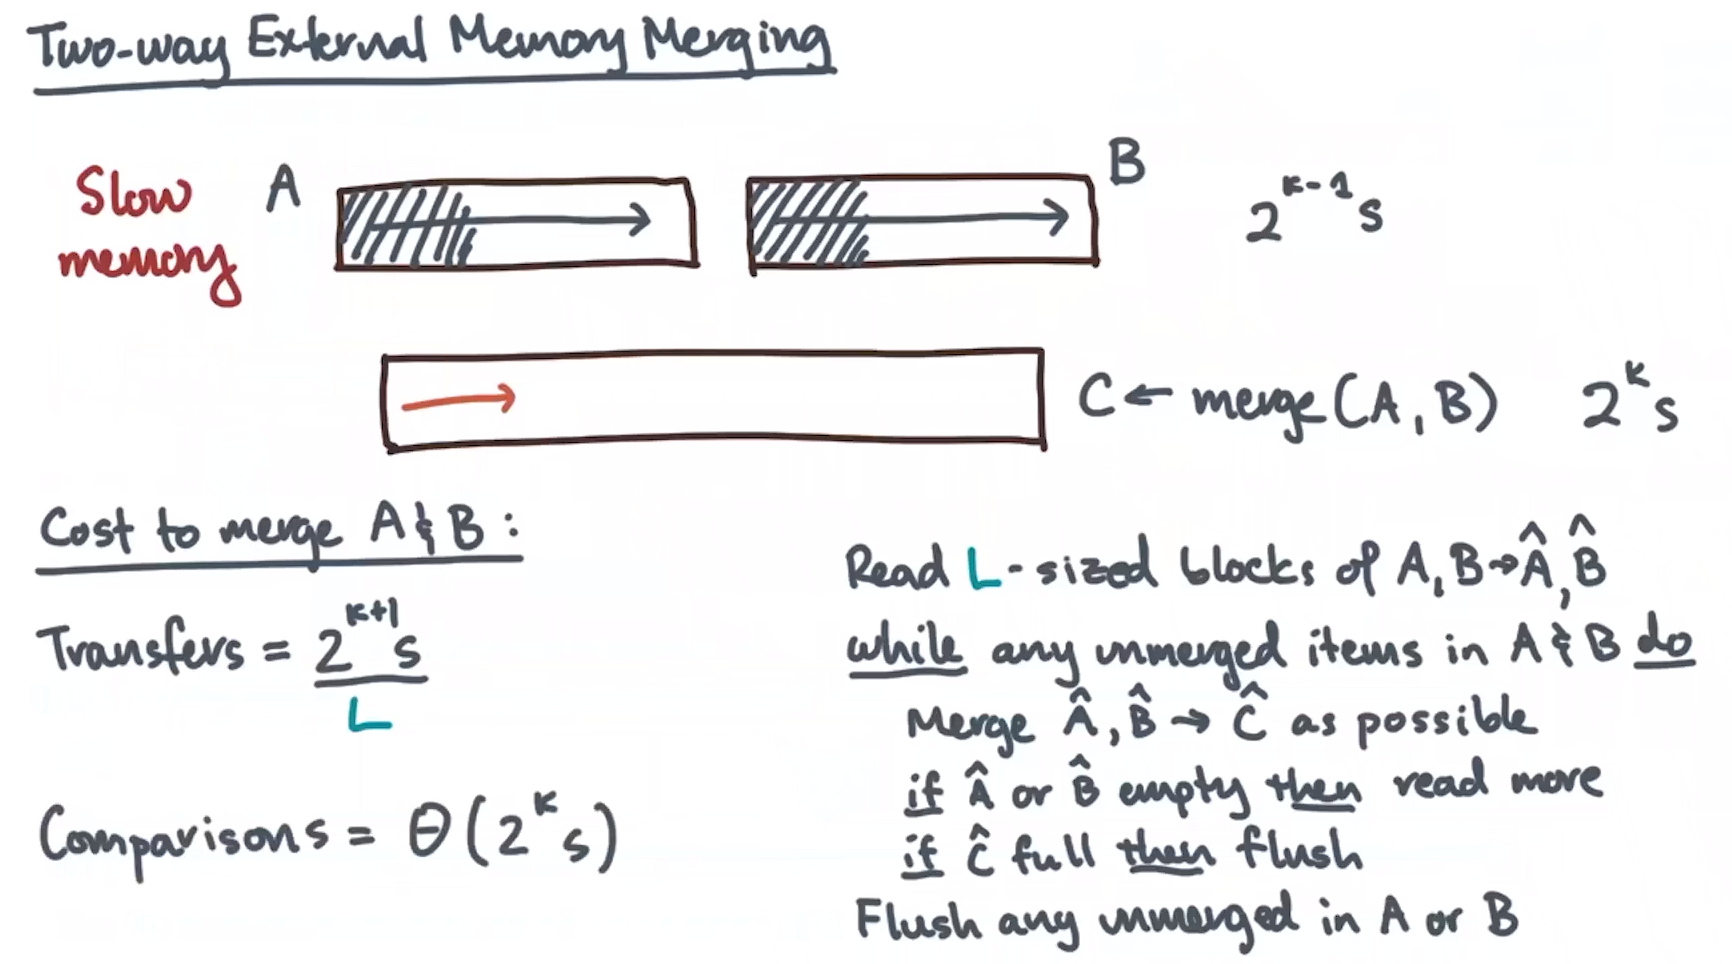 Two-way External Memory Merging
Slow memory
A
B
2^{k-1}s
C ← merge(A, B)
2^k s
Cost to merge A & B:
Transfers = 2^{k+1}s / L
Comparisons = Θ(2^k s)
Read L-sized blocks of A, B → Â, B̂
while any unmerged items in A & B do
Merge Â, B̂ → Ĉ as possible
if Â or B̂ empty then read more
if Ĉ full then flush
Flush any unmerged in A or B